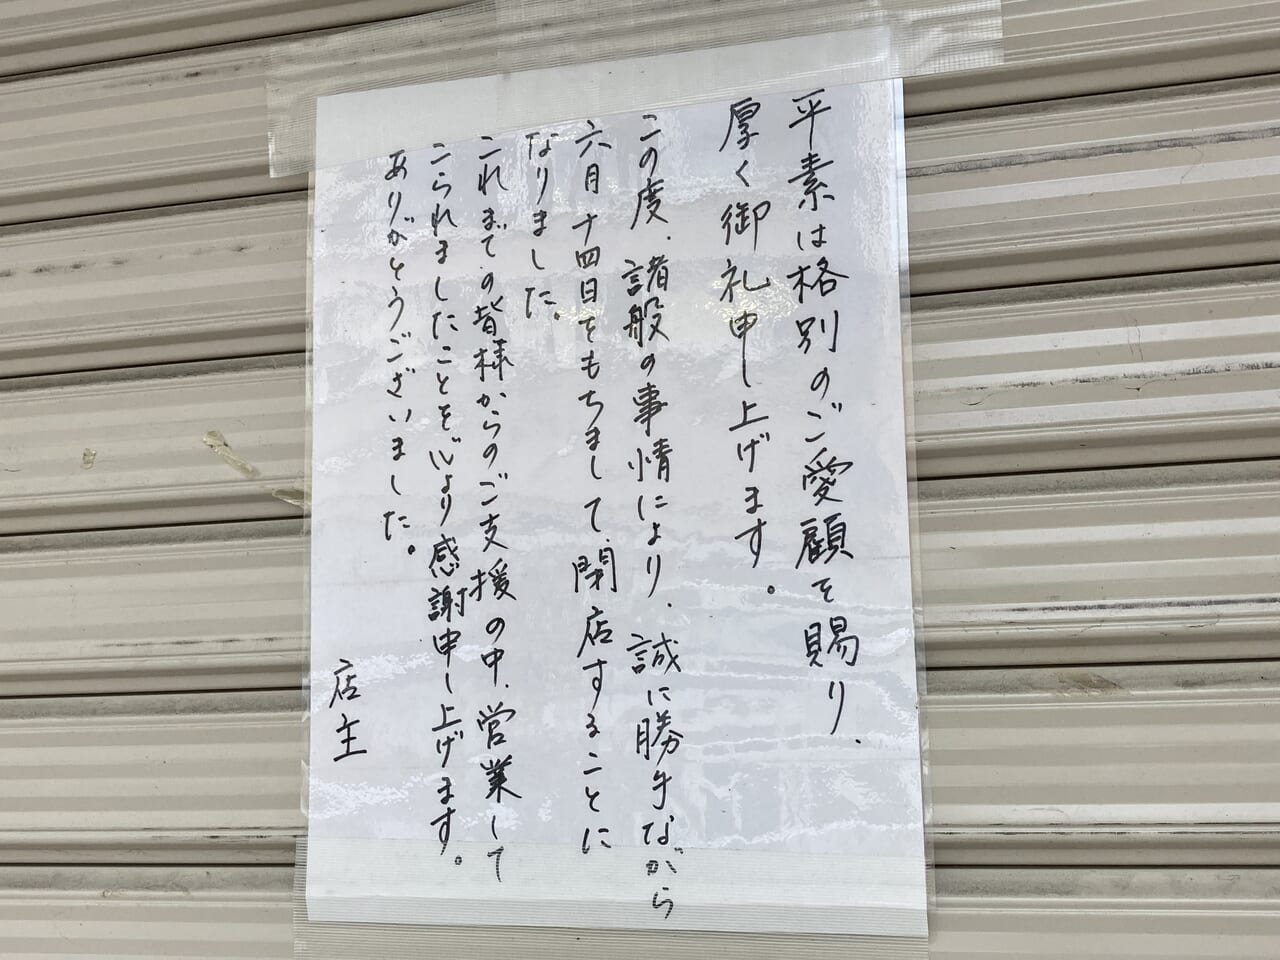 平素は格別のご愛顧を賜り、
厚く御礼申し上げます。
この度、諸般の事情により、誠に勝手ながら
六月十四日をもちまして、閉店することに
なりました。
これまでの皆様からのご支援の中、営業して
こられましたことを心より感謝申し上げます。
ありがとうございました。
店主